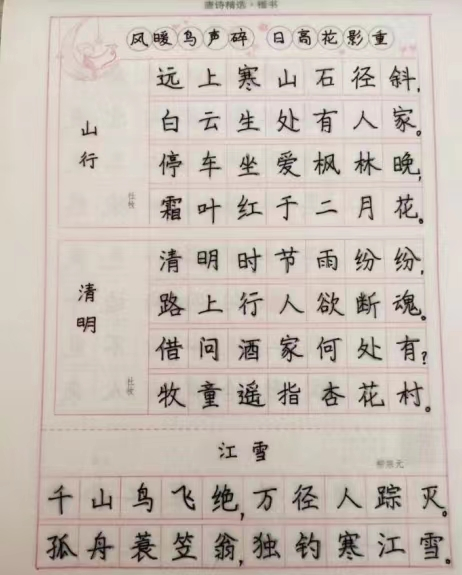 唐诗精选·楷书
风暖鸟声碎 日高花影重
山行
杜牧
远上寒山石径斜,
白云生处有人家。
停车坐爱枫林晚,
霜叶红于二月花。
清明
杜牧
清明时节雨纷纷,
路上行人欲断魂。
借问酒家何处有?
牧童遥指杏花村。
江雪
柳宗元
千山鸟飞绝,万径人踪灭。
孤舟蓑笠翁,独钓寒江雪。